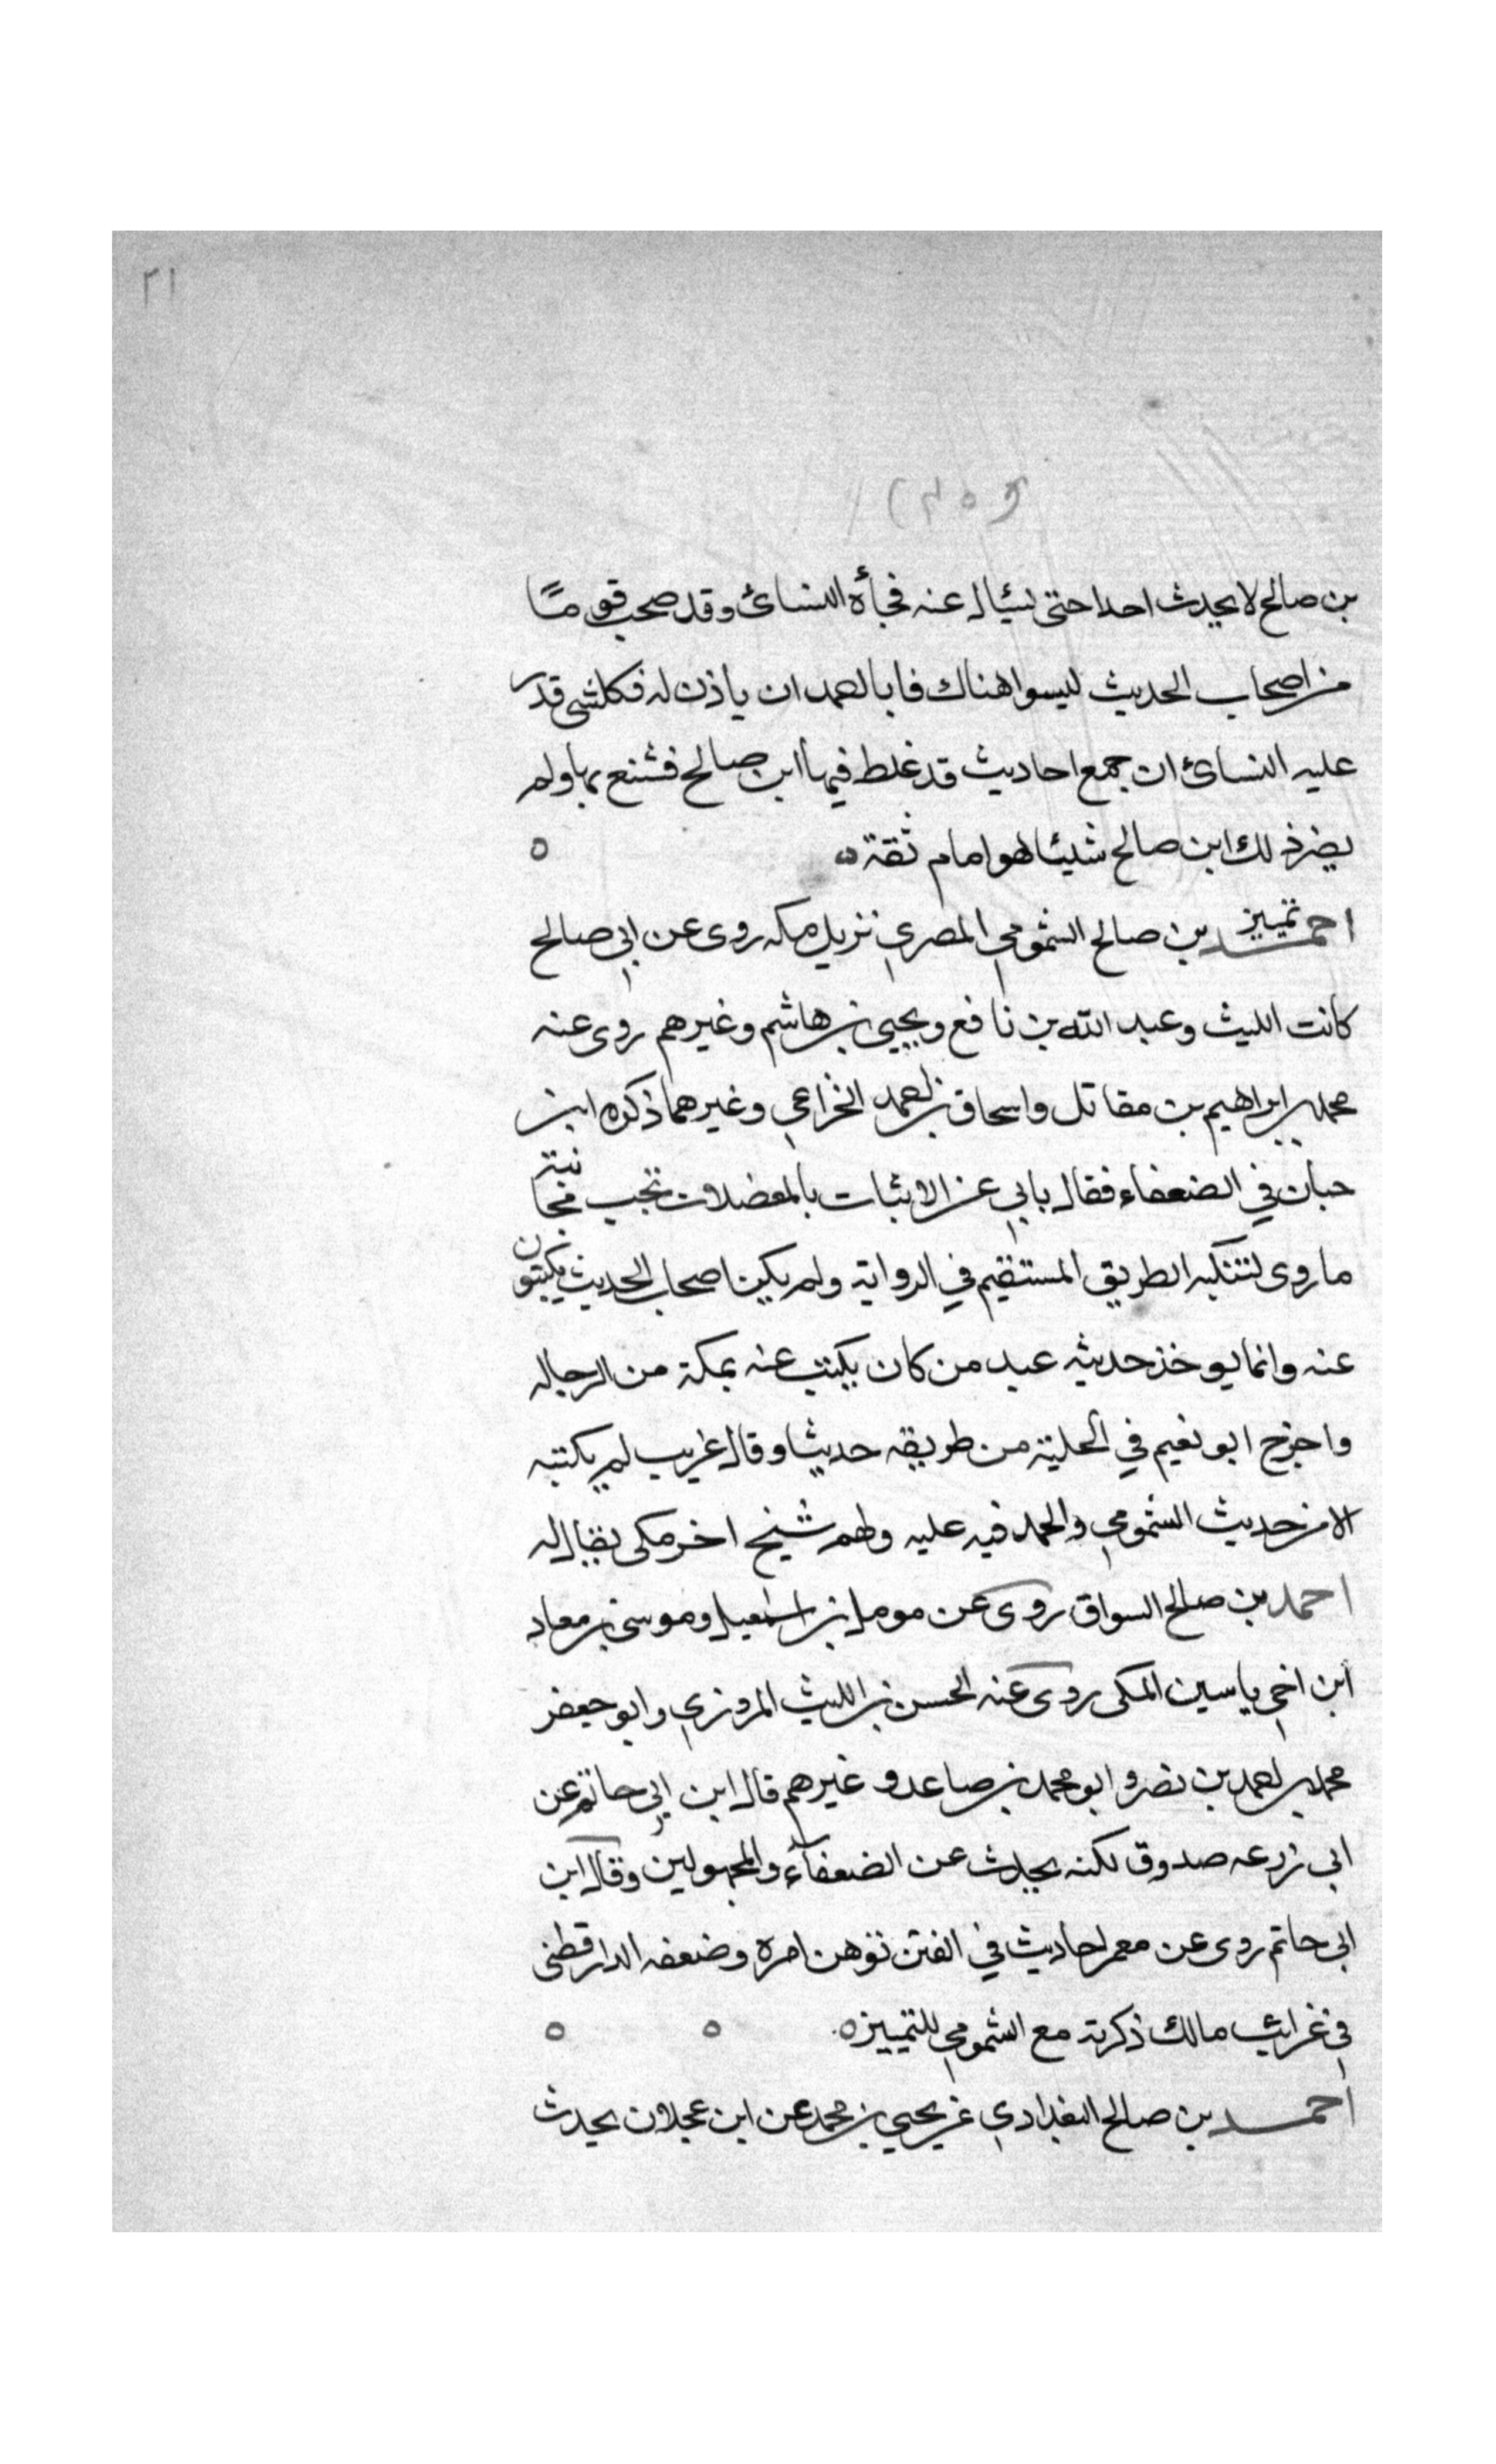 ٢١
بن صالح لا يحدث احدا حتى يسئال عنه فجأه النسائ وقد صحب قوما
من اصحاب الحديث ليسوا هناك فابا احمد ان ياذن له فكلشى قدر
عليه النسائ ان جمع احاديث قد غلط فيها ابن صالح فشنع بها ولم
يضر ذلك ابن صالح شيئا هو امام ثقة ٥ ٥
تمييز
احمد بن صالح الشمومي المصري نزيل مكه روى عن ابي صالح
كانت الليث وعبد الله بن نافع ويحيى بن هاشم وغيرهم روى عنه
محمد بن ابراهيم بن مقاتل واسحاق بن احمد الخزاعي وغيرهما ذكره ابن
حبان في الضعفاء فقال ياتي عن الاثبات بالمعضلات تجب مجانبته
ما روى لتنكبه الطريق المستقيم في الرواية ولم يكن اصحاب الحديث يكتبون
عنه وانما يوخذ حديثه عند من كان يكتب عنه بمكة من الرحاله
واخرج ابو نعيم في الحلية من طريقه حديثا وقال غريب لم يكتبه
الا من حديث الشمومي والحمد فيه عليه ولهم شيخ اخر مكى يقال له
احمد بن صالح السواق روى عن مومل بن اسمعيل وموسى بن معاد
ابن اخي ياسين المكى روى عنه الحسن بن الليث المروزي وابو جعفر
محمد بن احمد بن نصر وابو محمد بن صاعد وغيرهم قال ابن ابي حاتم عن
ابي زرعه صدوق لكنه يحدث عن الضعفآء والمجهولين وقال ابن
ابي حاتم روى عن معمر احاديث في الفتن توهن امره وضعفه الدارقطنى
في غرائب مالك ذكرته مع الشمومي للتمييز ٥ ٥ ٥
احمد بن صالح البغدادي عن يحيي بن محمد عن ابن عجلان يحدث